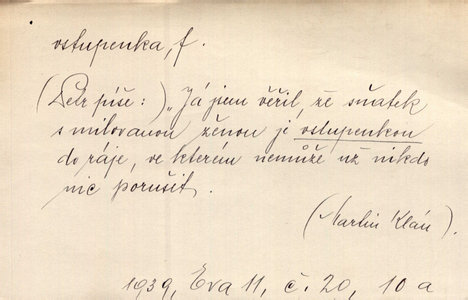 vstupenka, f.
(Petr píše:) „Já jsem věřil, že sňatek
s milovanou ženou je vstupenkou
do ráje, ve kterém nemůže už nikdo
nic porušit.
(Martin Klán).
1939, Eva 11, č. 20, 10 a